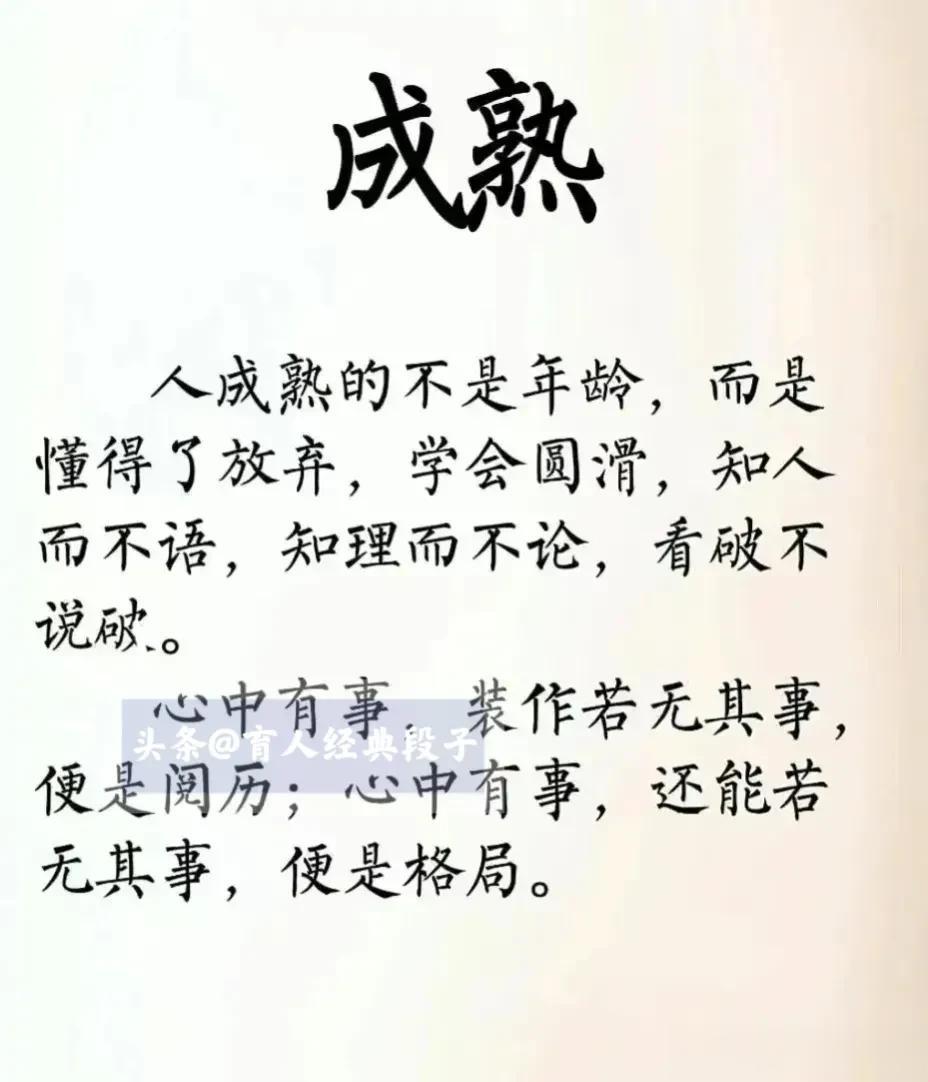 成熟
人成熟的不是年龄，而是
懂得了放弃，学会圆滑，知人
而不语，知理而不论，看破不
说破。
心中有事，装作若无其事，
头条@育人经典段子
便是阅历；心中有事，还能若
无其事，便是格局。